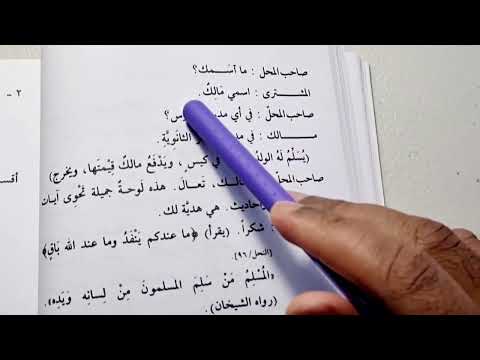 صاحب المحل : ما آسَمك؟
المشترى : اسمي مَالِكٌ.
صاحب المحلّ : في أي
مالك : في الثانَوِيَّةِ.
(يُسَلِّمُ لَهُ في كيسٍ ، ويَدْفَعُ مالكٌ قِيْمَتَها، ويخرج)
صاحب المحل تَعَالَ. هذه لَوحةٌ جميلة تَحْوِى آيات
هي هديَّة لك.
: شكراً. (يقرأ) ﴿ما عندكم يَنْفَدُ وما عند الله بَاقٍ﴾
(النحل/٩٦)
«المُسْلِمُ مَنْ سَلِمَ المسلمونَ مِنْ لِسانِه وَيَدِه».
(رواه الشيخان).
٢ -